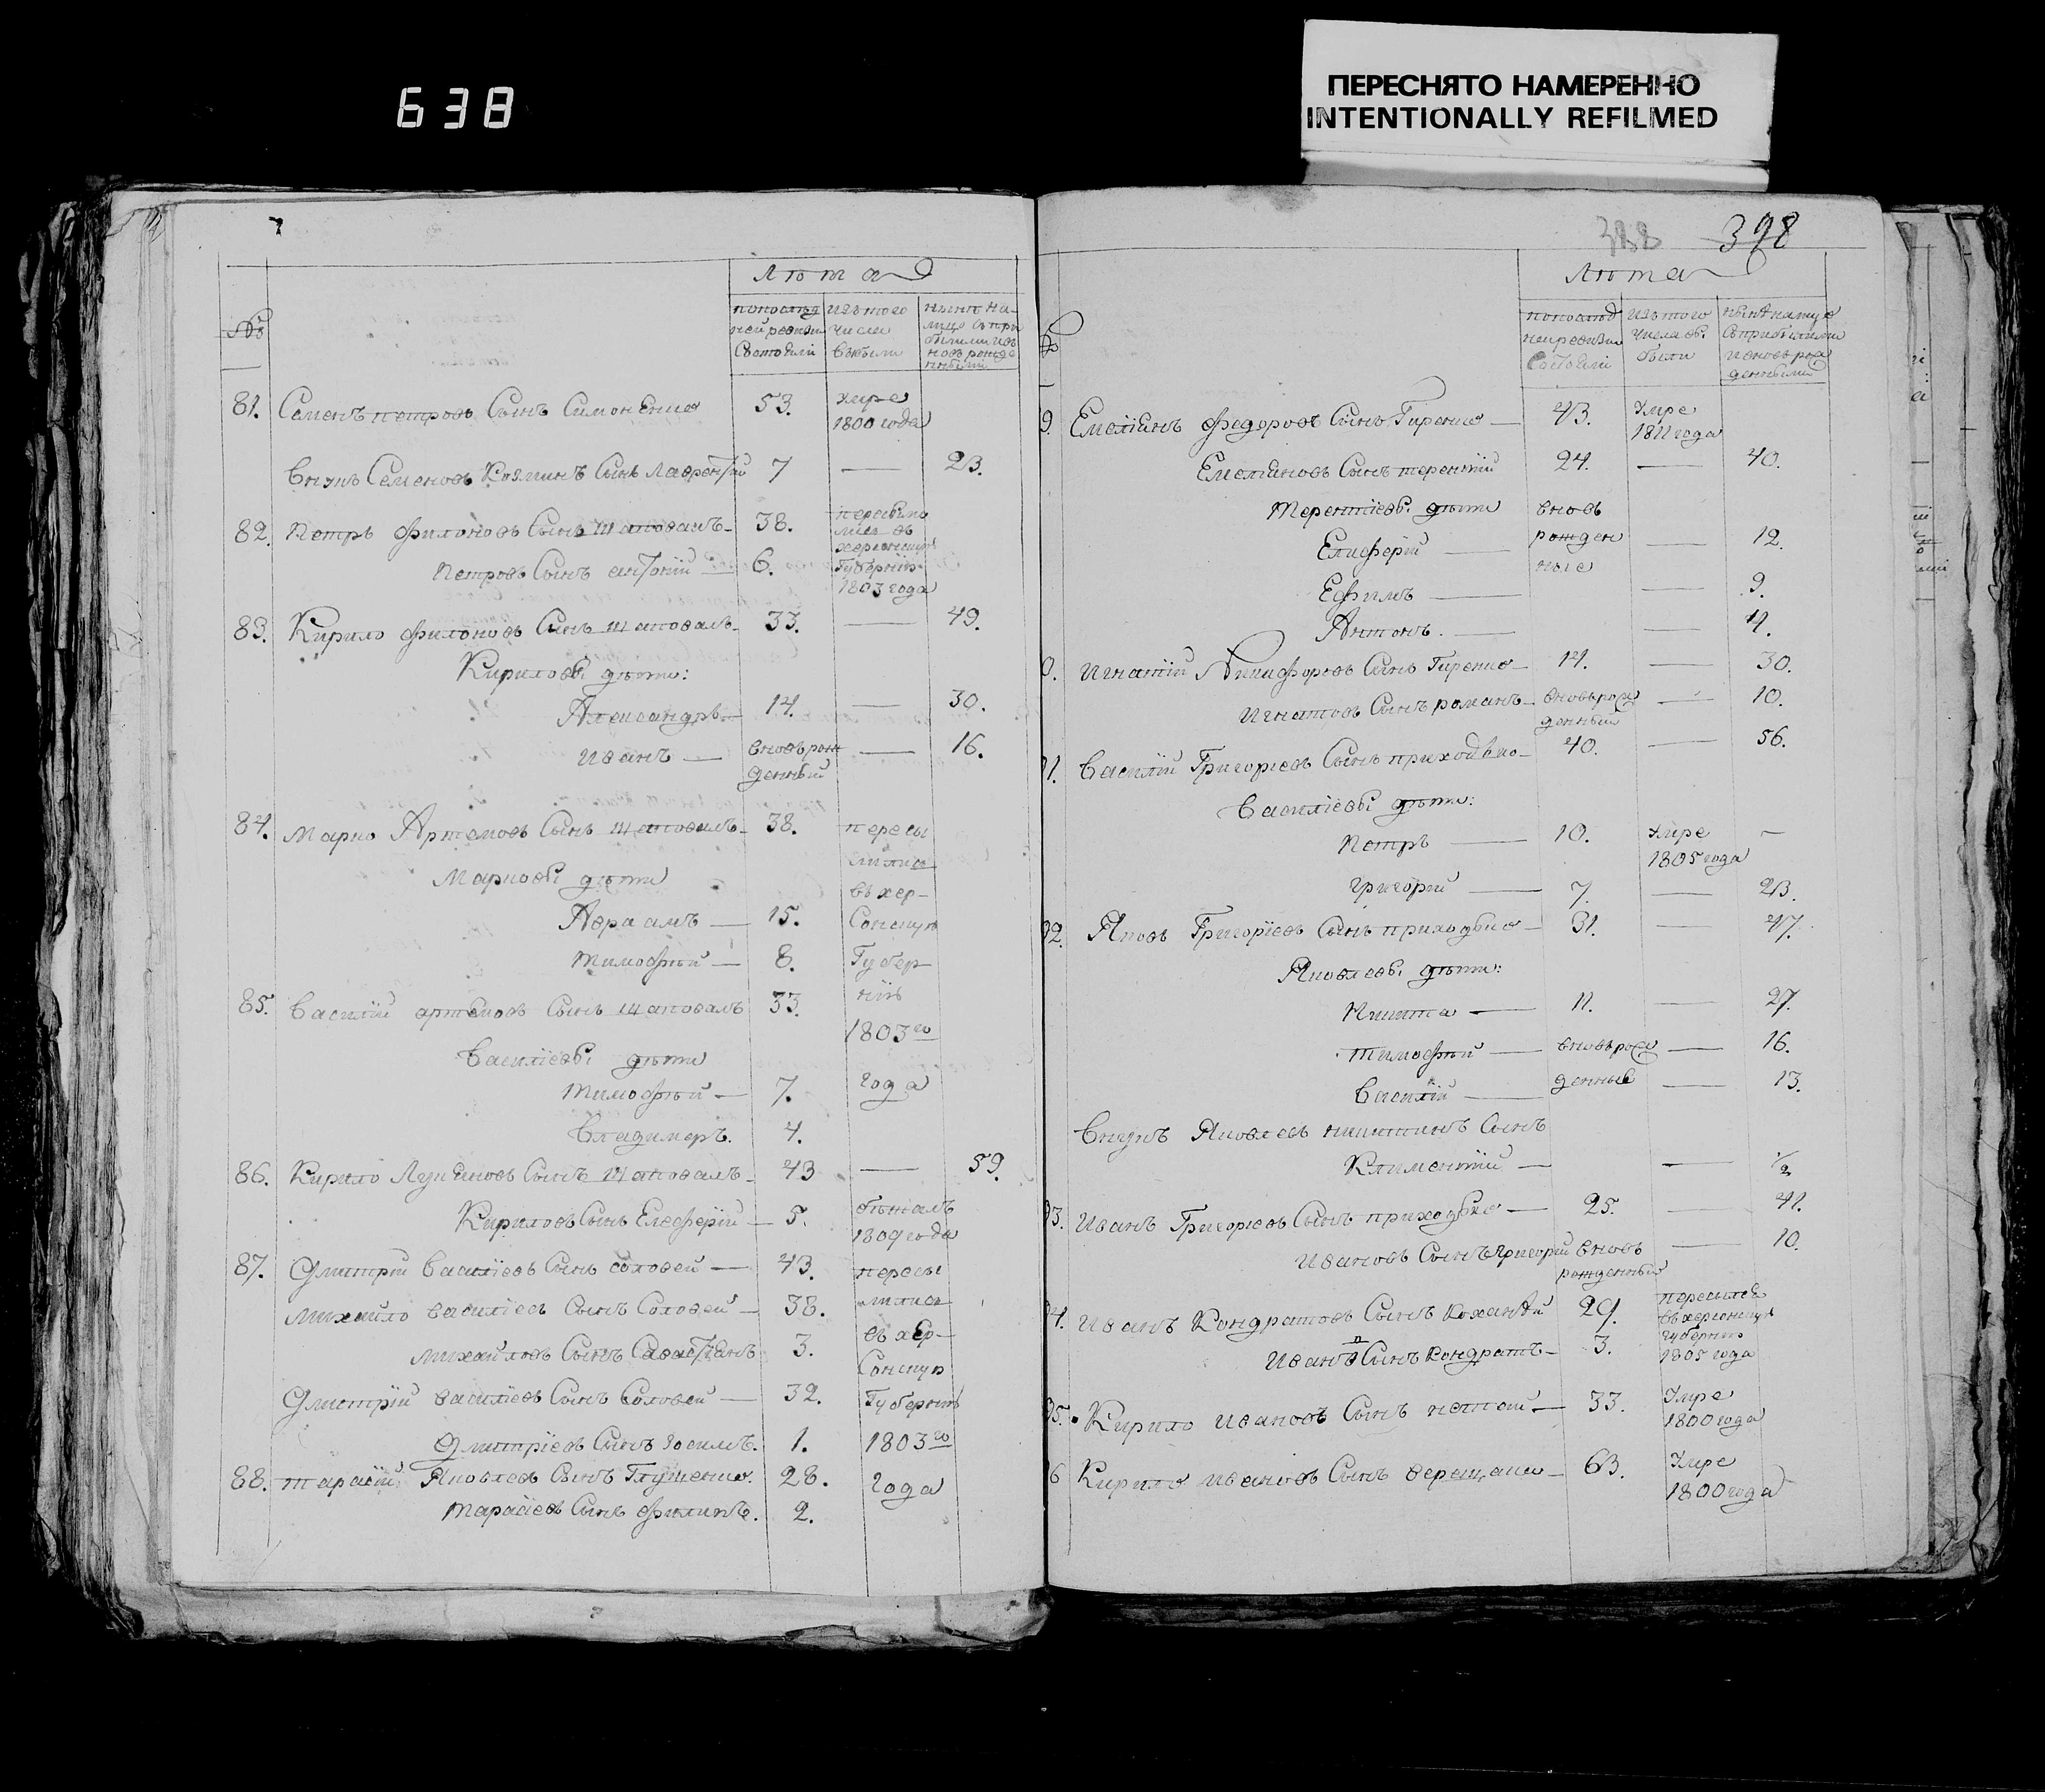 638
ПЕРЕСНЯТО НАМЕРЕННО
INTENTIONALLY REFILMED
Лѣта
№
попослѣд ней ревизiи Состояли
изътого числа выбыли
нынѣ на лицо съпри былими ивновь рожде нными
81. Семенъ петровъ Сынъ Симоненко 53. умре 1800 года
Внукъ Семеновъ Козминъ Сынъ Лаврентiй 7 — 23.
82. Петръ филоновъ Сынъ шаповалъ — 38. пересили лись въ херсонскую Губернiю 1803 года
Петровъ Сынъ антонiй — 6.
83. Кирило филоновъ Сынъ шаповалъ — 33. — 49.
Кириловы дѣти:
Александръ — 14. — 30.
Иванъ — вновьрож денный — 16.
84. Марко Артемовъ Сынъ шаповалъ — 38. пересе лились въ хер- Сонскую Губер нiю 1803го года
Марковы дѣти
Авраамъ — 15.
тимофѣй — 8.
85. Василiй артемовъ Сынъ шаповалъ 33.
Василiевы дѣти
тимофѣй — 7.
Владимеръ. 4.
86. Кирило Лукяновъ Сынъ шаповалъ — 43 — 59.
Кириловъ Сынъ Елеферiй — 5. бѣжалъ 1809 года
87. Дмитрiй Василiевъ Сынъ соловей — 43. пересе лились въ хер- Сонскую Губернiю 1803го года
Михайло василiевъ Сынъ Соловей — 38.
михайловъ Сынъ Савастiянъ 3.
Дмитрiй василiевъ Сынъ Соловей — 32.
Дмитрiевъ Сынъ Зосимъ. 1.
88. тарасiй Яковлевъ Сынъ Глущенко. 28.
тарасiевъ Сынъ филипъ. 2.
398
Лѣта
№
попослѣд нейревизiи Состояли
изътого числа вы были
нынѣналицо Съприбылими ивновьрож денными
9. Емелiянъ федоровъ Сынъ Гиренко — 43. Умре 1811 года
Емеляновъ Сынъ терентiй 24. — 40.
Терентiевы дѣти вновь рожден ные
Елиферiй — — 12.
Ефимъ — — 9.
Антонъ. — — 4.
0. Игнатiй Никифоровъ Сынъ Гиренко — 14. — 30.
Игнатовъ Сынъ романъ — вновьрож денный — 10.
91. Василiй Григорiевъ Сынъ приходько — 40. — 56.
Василiевы дѣти:
Петръ — 10. Умре 1805 года —
григорiй — 7. — 23.
92. Яковъ Григорiевъ Сынъ приходько — 31. — 47.
Яковлевы дѣти:
Никита — 11. — 27.
тимофѣй — вновьрож — 16.
Василiй — денные — 13.
Внукъ Яковлевъ никитинъ Сынъ
Климентiй — — 1/2
93. Иванъ Григорiевъ Сынъ приходько — 25. — 41.
Ивановъ Сынъ григорiй вновь рожденный — 10.
94. Иванъ Кондратовъ Сынъ 29. пересилен въхерсонскую губернiю 1805 года
Ивановъ Сынъ Кондратъ — 3.
95. Кирило Ивановъ Сынъ — 33. Умре 1800 года
6 Кирило Ивановъ Сынъ верещака — 63. Умре 1800 года